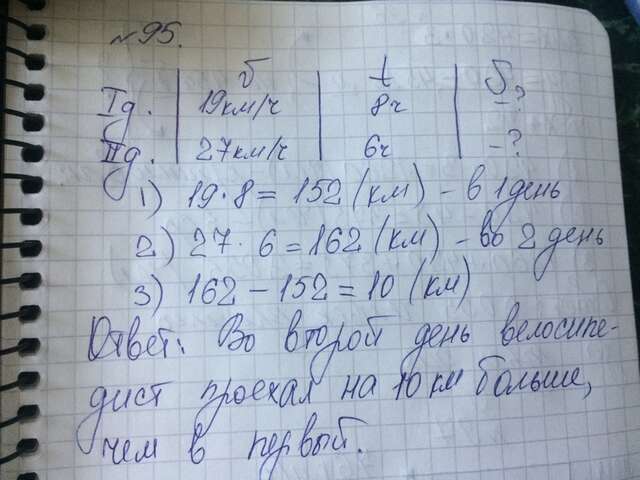 №95.
v t S
Iд. 19км/ч 8ч -?
IIд. 27км/ч 6ч -?
1) 19·8=152(км) - в 1 день
2) 27·6=162(км) - во 2 день
3) 162-152=10(км)
Ответ: Во второй день велосипе-
дист проехал на 10 км больше,
чем в первый.